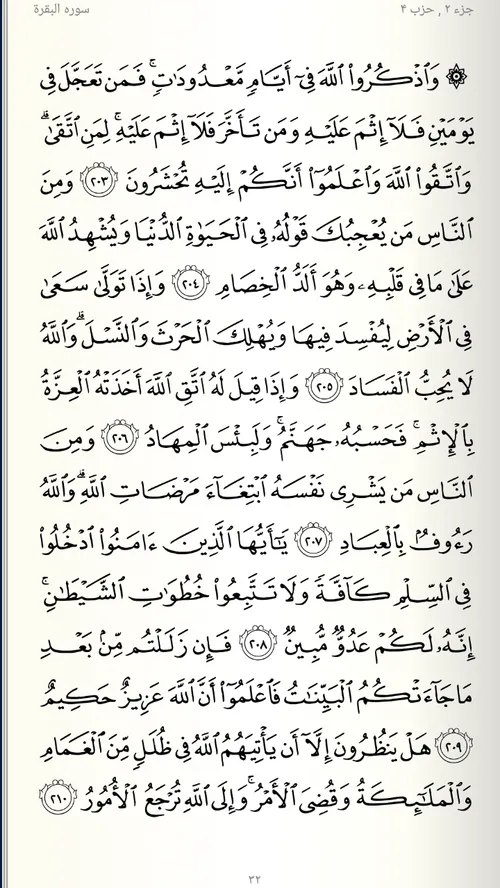 جزء ٢ , حزب ۴
سوره البقرة
۞ وَٱذْكُرُوا۟ ٱللَّهَ فِىٓ أَيَّامٍ مَّعْدُودَٰتٍ ۚ فَمَن تَعَجَّلَ فِى
يَوْمَيْنِ فَلَآ إِثْمَ عَلَيْهِ وَمَن تَأَخَّرَ فَلَآ إِثْمَ عَلَيْهِ ۚ لِمَنِ ٱتَّقَىٰ ۗ
وَٱتَّقُوا۟ ٱللَّهَ وَٱعْلَمُوٓا۟ أَنَّكُمْ إِلَيْهِ تُحْشَرُونَ ٢٠٣ وَمِنَ
ٱلنَّاسِ مَن يُعْجِبُكَ قَوْلُهُۥ فِى ٱلْحَيَوٰةِ ٱلدُّنْيَا وَيُشْهِدُ ٱللَّهَ
عَلَىٰ مَا فِى قَلْبِهِۦ وَهُوَ أَلَدُّ ٱلْخِصَامِ ٢٠٤ وَإِذَا تَوَلَّىٰ سَعَىٰ
فِى ٱلْأَرْضِ لِيُفْسِدَ فِيهَا وَيُهْلِكَ ٱلْحَرْثَ وَٱلنَّسْلَ ۗ وَٱللَّهُ
لَا يُحِبُّ ٱلْفَسَادَ ٢٠٥ وَإِذَا قِيلَ لَهُ ٱتَّقِ ٱللَّهَ أَخَذَتْهُ ٱلْعِزَّةُ
بِٱلْإِثْمِ ۚ فَحَسْبُهُۥ جَهَنَّمُ ۚ وَلَبِئْسَ ٱلْمِهَادُ ٢٠٦ وَمِنَ
ٱلنَّاسِ مَن يَشْرِى نَفْسَهُ ٱبْتِغَآءَ مَرْضَاتِ ٱللَّهِ ۗ وَٱللَّهُ
رَءُوفٌۢ بِٱلْعِبَادِ ٢٠٧ يَٰٓأَيُّهَا ٱلَّذِينَ ءَامَنُوا۟ ٱدْخُلُوا۟
فِى ٱلسِّلْمِ كَآفَّةً وَلَا تَتَّبِعُوا۟ خُطُوَٰتِ ٱلشَّيْطَٰنِ ۚ
إِنَّهُۥ لَكُمْ عَدُوٌّ مُّبِينٌ ٢٠٨ فَإِن زَلَلْتُم مِّنۢ بَعْدِ
مَا جَآءَتْكُمُ ٱلْبَيِّنَٰتُ فَٱعْلَمُوٓا۟ أَنَّ ٱللَّهَ عَزِيزٌ حَكِيمٌ
٢٠٩ هَلْ يَنظُرُونَ إِلَّآ أَن يَأْتِيَهُمُ ٱللَّهُ فِى ظُلَلٍ مِّنَ ٱلْغَمَامِ
وَٱلْمَلَٰٓئِكَةُ وَقُضِىَ ٱلْأَمْرُ ۚ وَإِلَى ٱللَّهِ تُرْجَعُ ٱلْأُمُورُ ٢١٠
٣٢